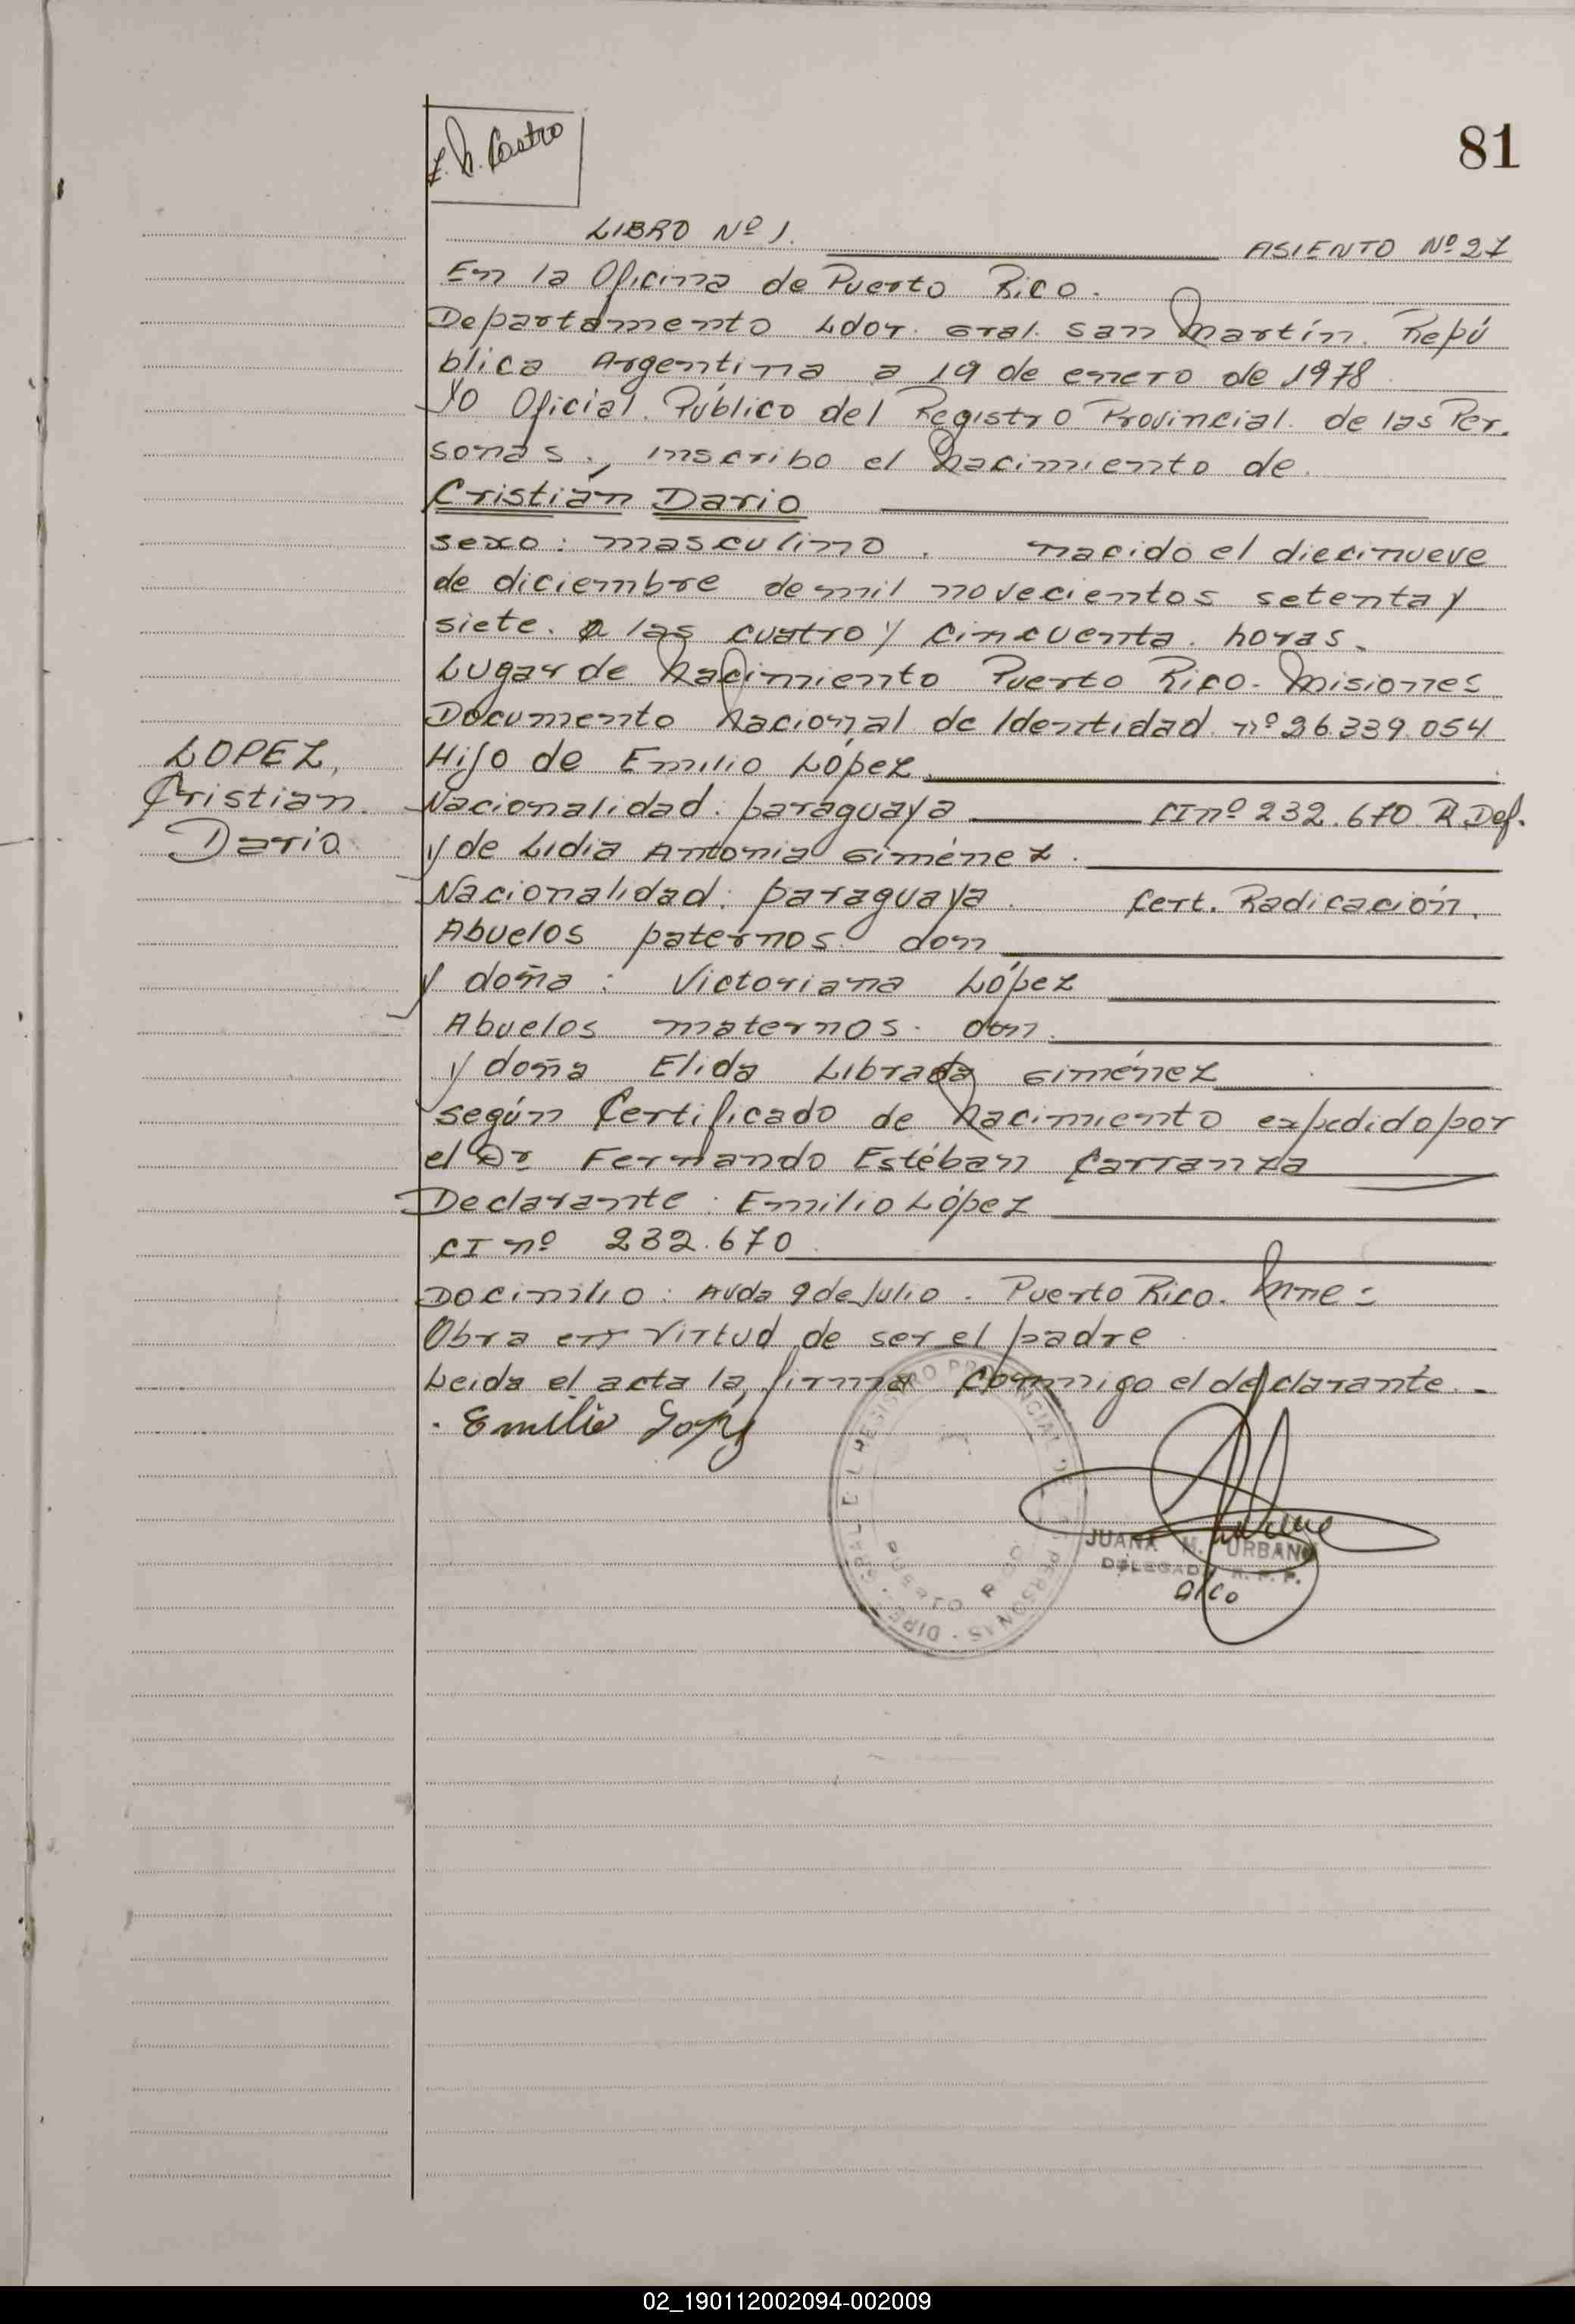 Castro
81
LIBRO Nº 1. ASIENTO Nº 27
En la Oficina de Puerto Rico.
Departamento Ldor. Gral. San Martín. Repú
blica Argentina a 19 de enero de 1978
Yo Oficial Público del Registro Provincial de las Per.
sonas, inscribo el Nacimiento de
Cristián Dario
sexo: masculino. nacido el diecinueve
de diciembre de mil novecientos setenta y
siete. a las cuatro y cincuenta. horas.
Lugar de Nacimiento Puerto Rico. Misiones
Documento Nacional de Identidad nº 26.339.054
LOPEZ,
Cristian
Dario
Hijo de Emilio López.
Nacionalidad: paraguaya CI nº 232.670 R Def.
y de Lidia Antonia Giménez.
Nacionalidad: paraguaya. Cert. Radicación.
Abuelos paternos. don
y doña: Victoriana López
Abuelos maternos. don
y doña Elida Librada Giménez
según Certificado de Nacimiento expedido por
el Dr Fernando Estéban Carranza
Declarante: Emilio López
CI nº 232.670
Docimilio: Avda 9 de Julio. Puerto Rico. Mnes
Obra en virtud de ser el padre
Leida el acta la firma conmigo el declarante.
Emilio Lopez
JUANA M. URBANO
DELEGADA R. P. P.
DIREC. GRAL. DEL REGISTRO PROVINCIAL DE LAS PERSONAS
PUERTO RICO
02_190112002094-002009